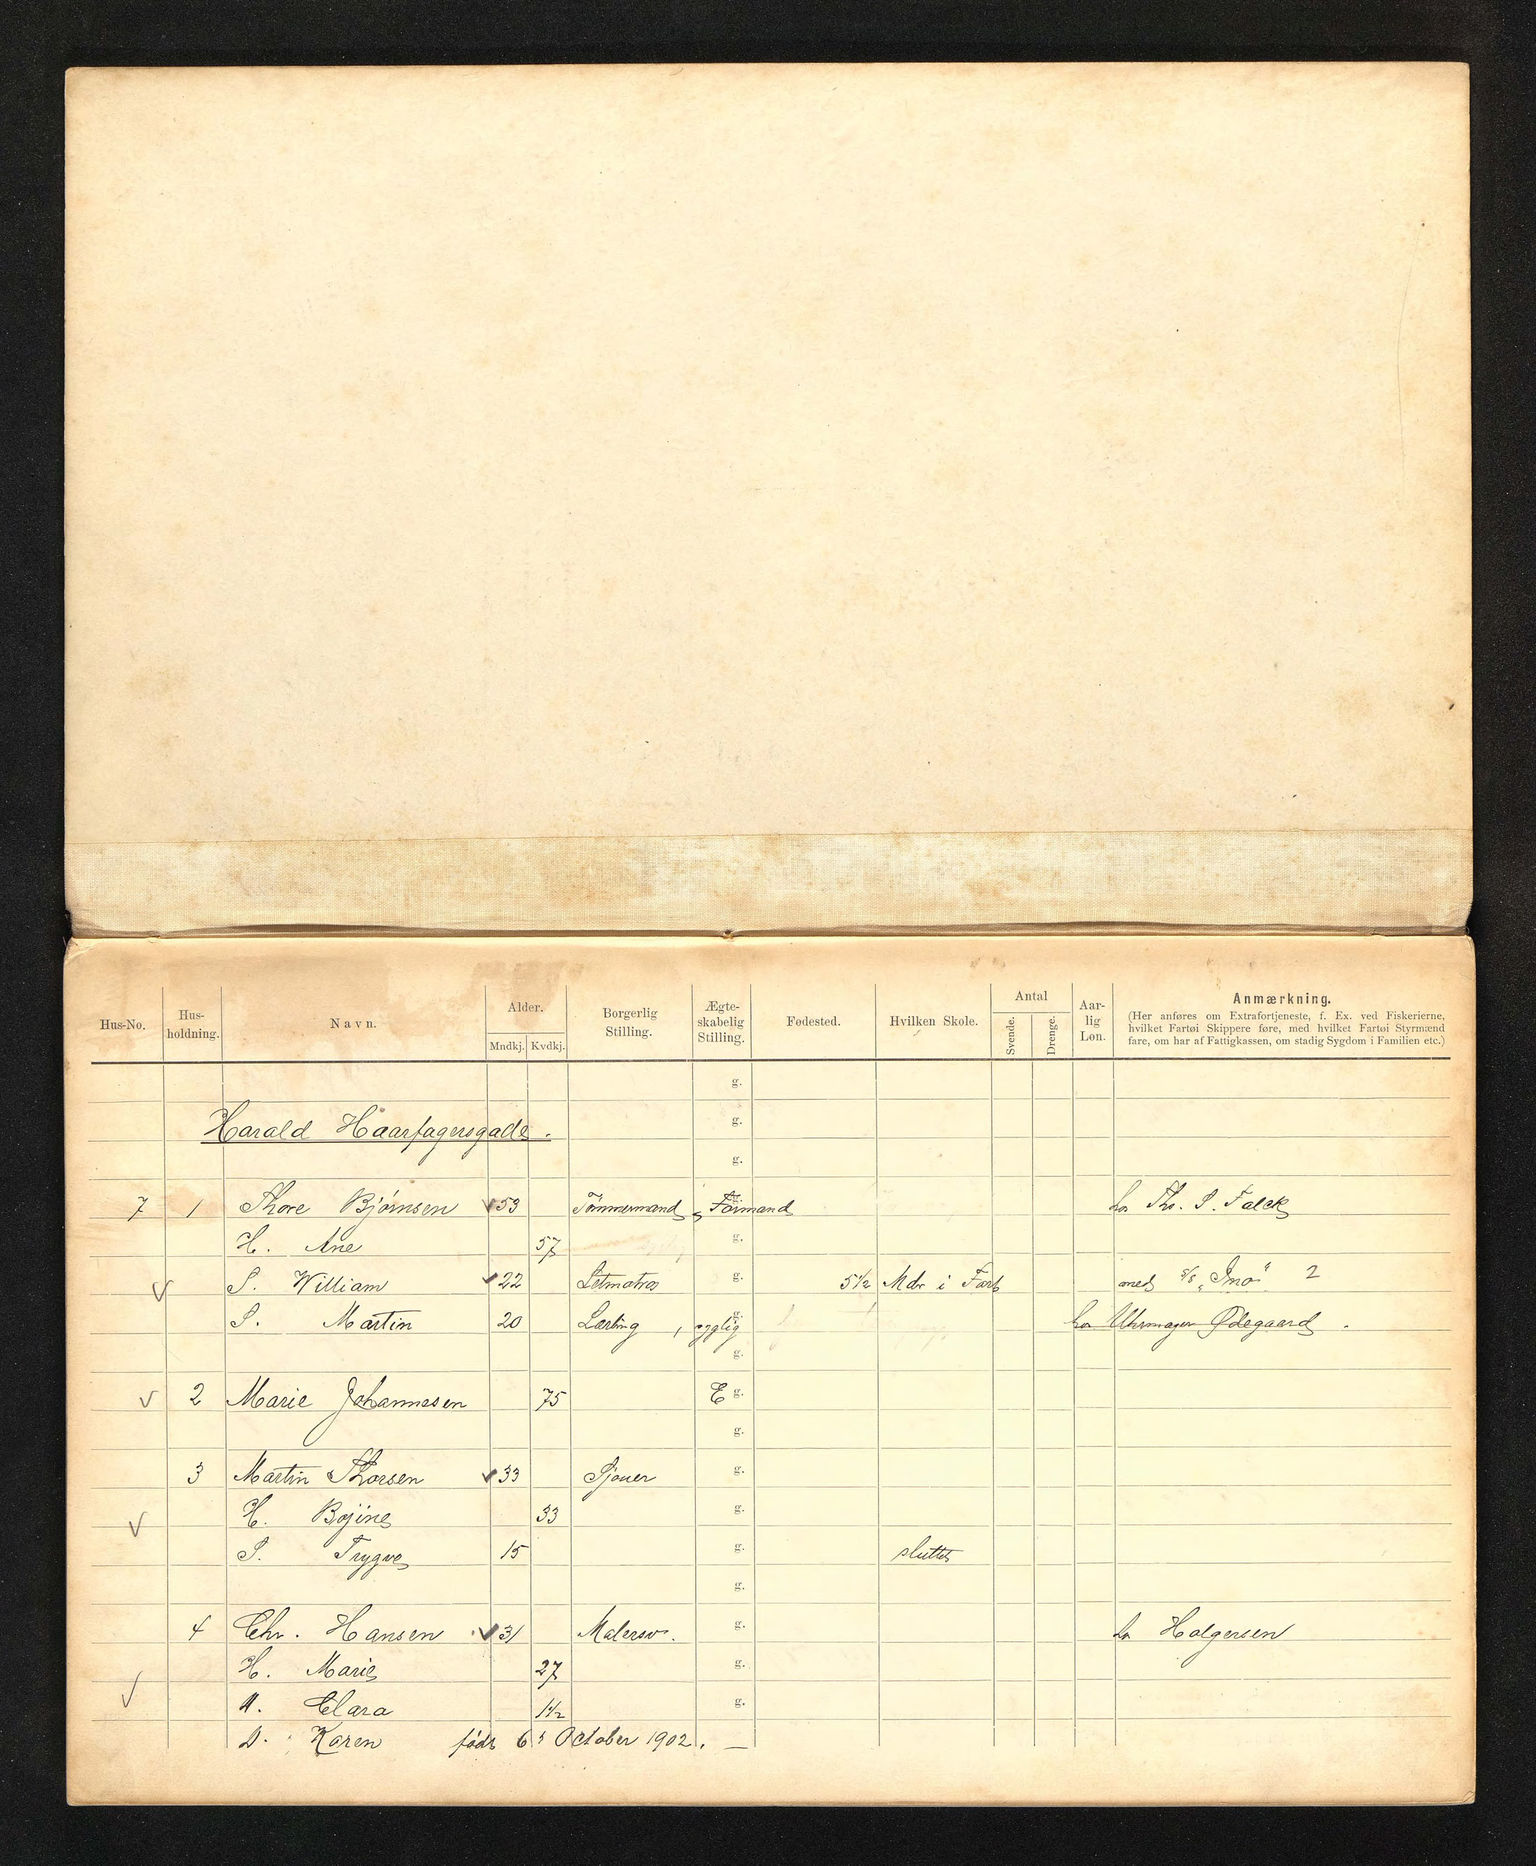 Hus-No. Hus-holdning. Navn. Alder. Mndkj. Kvdkj. Borgerlig Stilling. Ægte-skabelig Stilling. Fødested. Hvilken Skole. Antal Svende. Drenge. Aar-lig Løn. Anmærkning.
(Her anføres om Extrafortjeneste, f. Ex. ved Fiskerierne,
hvilket Fartøi Skippere føre, med hvilket Fartøi Styrmænd
fare, om har af Fattigkassen, om stadig Sygdom i Familien etc.)
g.
Harald Haarfagersgade. g.
g.
7 1 Thore Bjørnsen √ 53 Tømmermand, Formand g. hos Th. S. Falck
H. Ane 57 g.
√ S. William √ 22 Letmatros g. 5 1/2 Mdr i Fart med s/s "Ino" 2
S. Martin 20 Lærling, syglig g. hos Uhrmager Ødegaard.
g.
√ 2 Marie Johannesen 75 E g.
g.
3 Martin Thorsen √ 33 Sjouer g.
√ H. Bojine 33 g.
S. Trygve 15 g. sluttet
g.
4 Chr. Hansen √ 31 Malersv. g. hos Holgersen
√ H. Marie 27 g.
D. Clara 1 1/2 g.
D. Karen født 6t October 1902. —